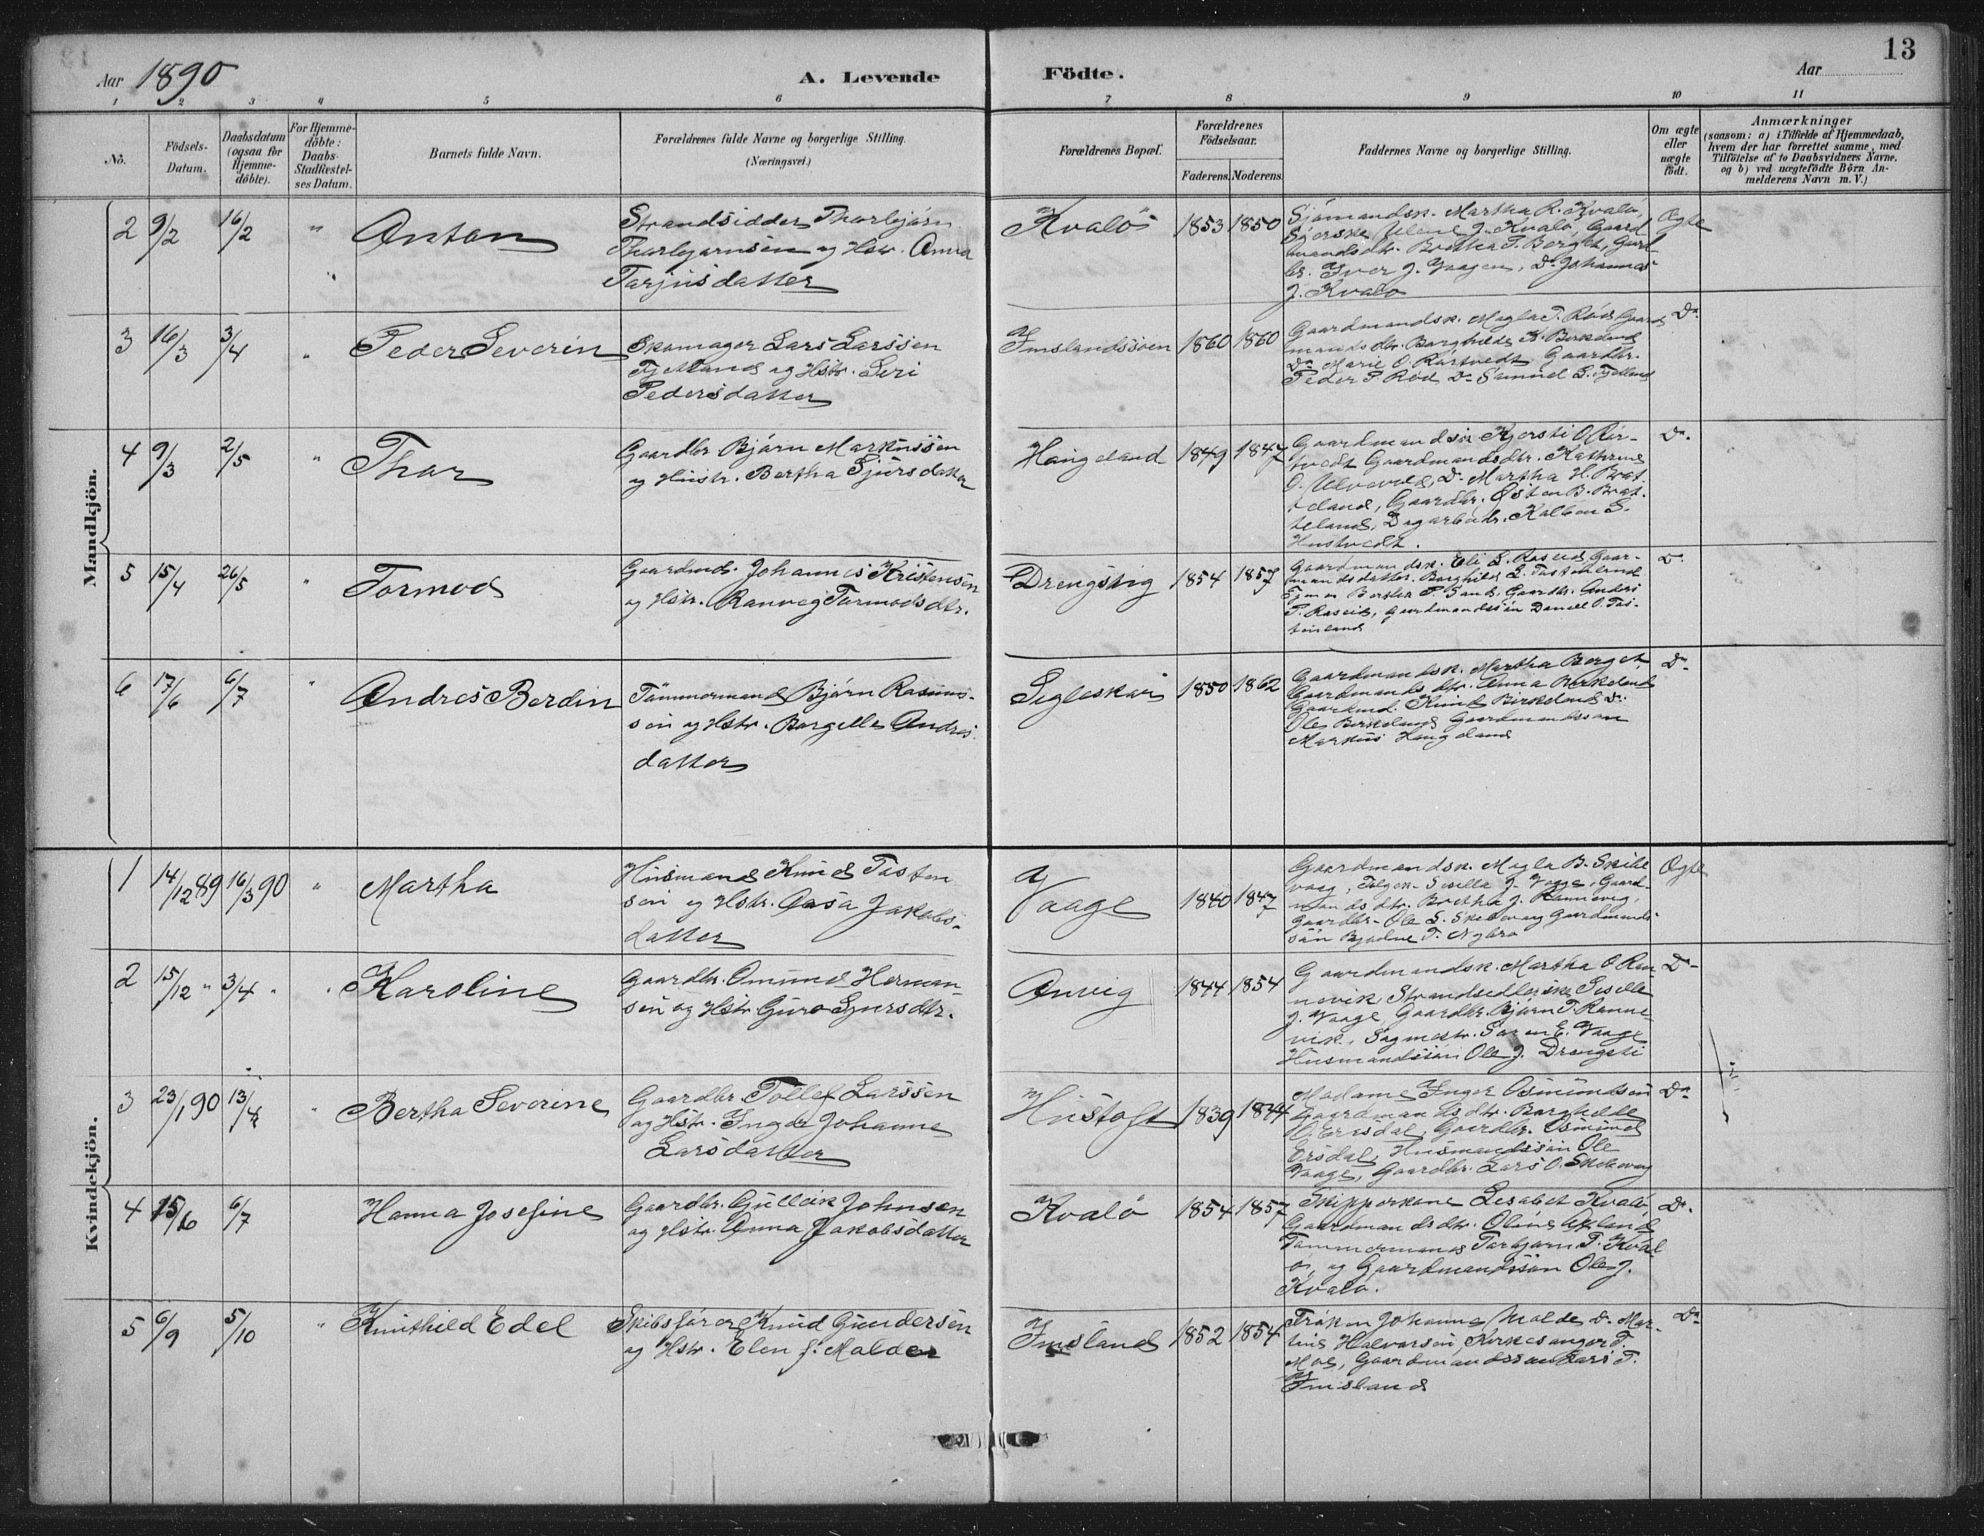 13
Aar 1890
A. Levende
Födte.
Aar
1 2 3 4 5 6 7 8 9 10 11
No.
Födsels-
Datum.
Daabsdatum
(ogsaa for
Hjemme-
döbte).
For Hjemme-
döbte:
Daabs-
Stadfæstel-
ses Datum.
Barnets fulde Navn.
Forældrenes fulde Navne og borgerlige Stilling.
(Næringsvei.)
Forældrenes Bopæl.
Forældrenes
Födselsaar.
Faderens. Moderens.
Faddernes Navne og borgerlige Stilling.
Om ægte
eller
uægte
födt.
Anmærkninger
(saasom: a) i Tilfælde af Hjemmedaab,
hvem der har forrettet samme, med
Tilföielse af to Daabsvidners Navne,
og b) ved uægtefödte Börn An-
melderens Navn m. V.)
Mandkjön.
2 9/2 16/2 " Anton
Strandsidder Thorbjörn
Thorbjørnsen og Hstr. Anna
Tarjusdatter
Kvalö 1853 1850
Sjömandsk. Martha R. Kvalö,
J. Kvalö, Gaard
mandsdtr. Bertha T. Berget, Gard
br. Iver J. Vaagen, Do Johannes
J. Kvalö
Ægte
3 16/3 3/4 " Peder Severin
Skomager Lars Larssen
Fjelland og Hstr. Siri
Pedersdatter
Imslandssöen 1860 1860
Gaardmandsk. Magla T. Röd, Gaard
mandsdtr. Borghilde K. Birkeland
Do Marie O. Rörtvedt, Gaardbr.
Peder P. Röd, Do Samuel L. Fjelland
Do
4 9/3 2/5 " Thor
Gaardbr. Bjørn Markussen
og Hustr. Bertha Sjursdatter
Haugeland 1849 1847
Gaardmandsk. Kjersti O. Rör-
tvedt, Gaardmandsdtr. Kathrine
O. Ulvevne, Do Martha H. Brat-
teland, Gaardbr. Östen B. Brat-
teland, Dagarbeidr. Kolben S.
Hustvedt.
Do
5 15/4 26/5 " Tormod
Gaardmd. Johannes Kristensen
og Hstr. Ranveig Tormodsdtr.
Drengstig 1854 1857
Gaardmandsk. Eli L. Raseid, Gaar-
mandsdatter Borghild L. Tastenland
Bertha P. Sand, Gaardbr. Anders
P. Raseid, Gaardmandssön Daniel O. Tas-
tenland
Do
6 17/6 6/7 " Andres Berdin
Tömmermand Bjørn Rasmus-
sen og Hstr. Borgille Andres
datter
Segleskar 1850 1862
Gaardmandsk. Martha Berget
Gaardmandsdtr. Anna Birkeland
Gaardmd. Knud Birkeland Do
Ole Birkeland Gaardmandssøn
Markus Haugeland
Do
Kvindekjön.
1 14/12 89 16/3 90 " Martha
Husmand Knud Tasten
sen og Hstr. Aasa Jakobs-
datter
Vaage 1840 1847
Gaardmandsk. Magla B. Skibe
vaag, Sesilla J. Vaage, Gaard-
mandsdtr. Bertha J. Rannevig,
Gaardbr. Ole S. Skebevaag Gaardmands-
sön Bjadne T. Nybro
Ægte
2 15/12 " 3/4 " " Karoline
Gaardbr. Omund Herman-
sen og Hstr. Guro Sjursdtr.
Anvig 1844 1854
Gaardmandsk. Martha O. Ran
nevik, Strandsidderske Siselle
J. Vaage, Gaardbr. Bjørn T. Ranne-
vik, Sagmestr. Soren E. Vaage
Husmandssön Ole J. Drengsti
Do
3 23/1 90 13/4 " Bertha Severine
Gaardbr. Tollef Larssen
og Hstr. Inger Johanne
Larsdatter
Hustoft 1839 1844
Madame Inger Osmundsen
Gaardmandsdtr. Borghilde
O. Ersdal, Gaardbr. Osmund
Ersdal, Husmandssön Ole
Vaage, Gaardbr. Lars O. Skebevaag
Do
4 15/6 6/7 Hanna Josefine
Gaardbr. Gullik Johnsen
og Hstr. Anna Jakobsdatter
Kvalö 1854 1857
Skipperkone Lisabet Kvalö,
Gaardmandsdtr. Oline Opland
Tømmermand Torbjørn T. Kval
ö, og Gaardmandssøn Ole J.
Kvalö.
Do
5 6/9 5/10 " Knuthild Edel
Skibsförer Knud Gundersen
og Hstr. Elen f. Malde
Imsland 1852 1854
Fröken Johanne Malde, Do Mar-
tine Halvorsen, Kirkesanger T.
Moe, Gaardmandssøn Lars T.
Imsland
Do